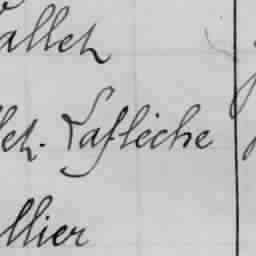 allet
let. Laflèche
llier